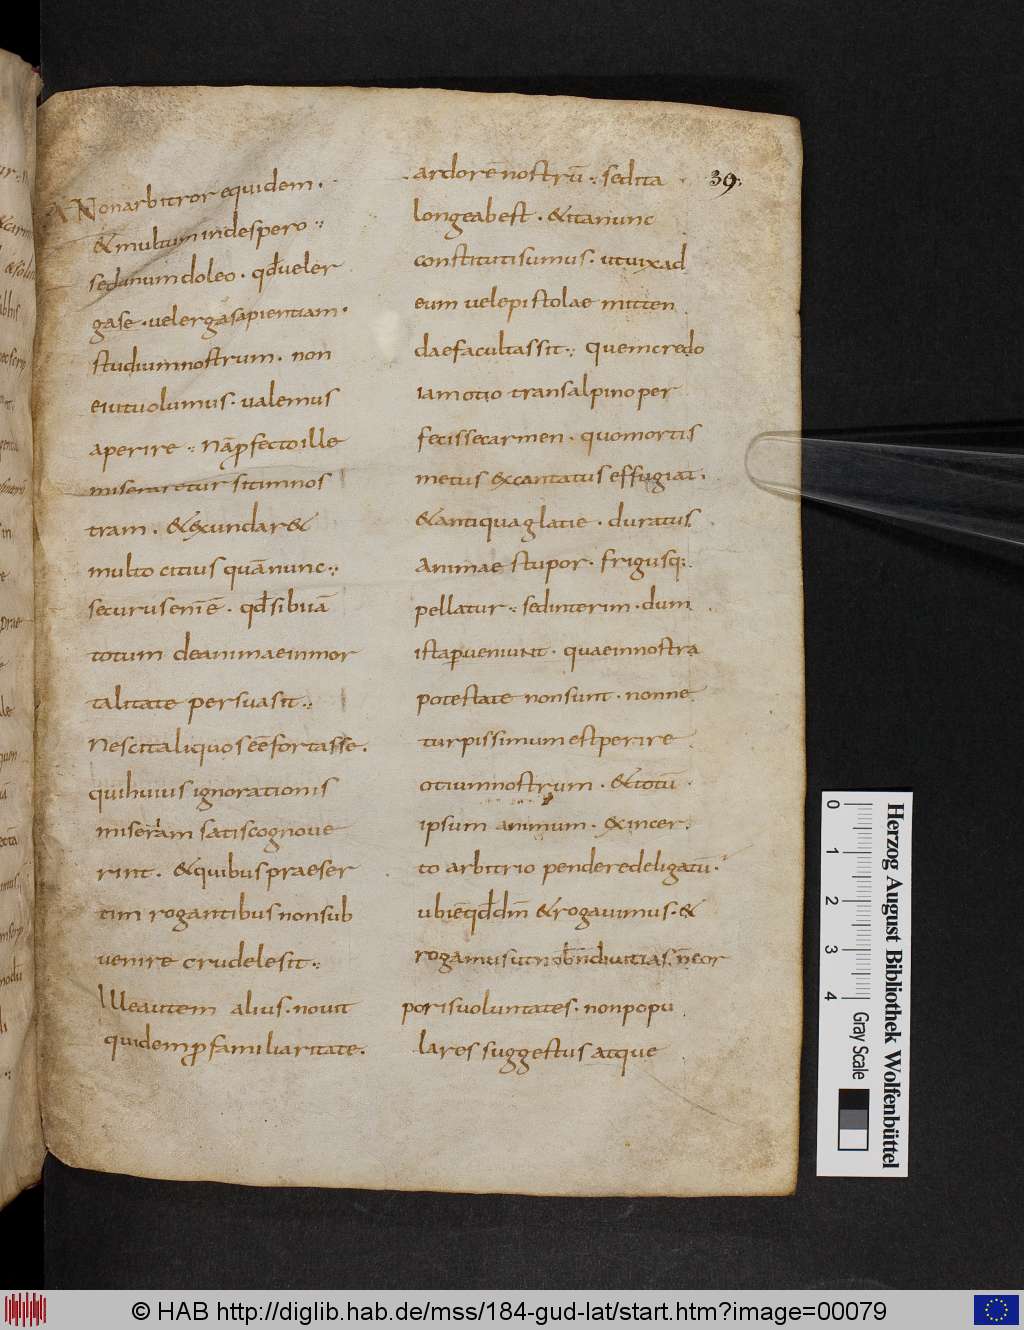 Nonarbitror equidem .
&multum indespero :
sedanumdoleo . qđueler
gase . velergasapientiam .
studiumnostrum . non
eivtvolumus . ualemus
aperire : nāpfectoille
miseraretur sitimnos
tram . &excundar&
multo citius quānunc :
securusenīē . qđsibiiā
totum deanimaeinmor
talitate persuasit :
Nescitaliquosēefortasse .
quihuius ignorationis
miseriam satiscognoue
rint . &quibuspraeser
tim rogantibusnonsub
uenire crudelesit :
Illeautem alius . nouit
quidempfamiliaritate .
ardorē nostrū : sedita
39:
longeabest . &itanunc
constitutisumus . utuixad
eum velepistolae mitten
daefacultassit : Quemcredo
iamotio transalpinoper
fecissecarmen . quomortis
metus excantatus effugiat .
&antiquaglatie . duratus
animae stupor . frigusq:
pellatur : sedinterim . dum
istapueniunt . quaeinnostra
potestate nonsunt . nonne
turpissimumestperire
otiumnostrum . &totū .
ipsum animum . exincer
to arbitrio penderedeligatū .
ubiēqđdm̄ &rogauimus . &
rogamusutnob̄ndiuitias . n̄cor
porisuoluntates . nonpopu
lares suggestus atque
Herzog August Bibliothek Wolfenbüttel
0 1 2 3 4 Gray Scale
© HAB http://diglib.hab.de/mss/184-gud-lat/start.htm?image=00079